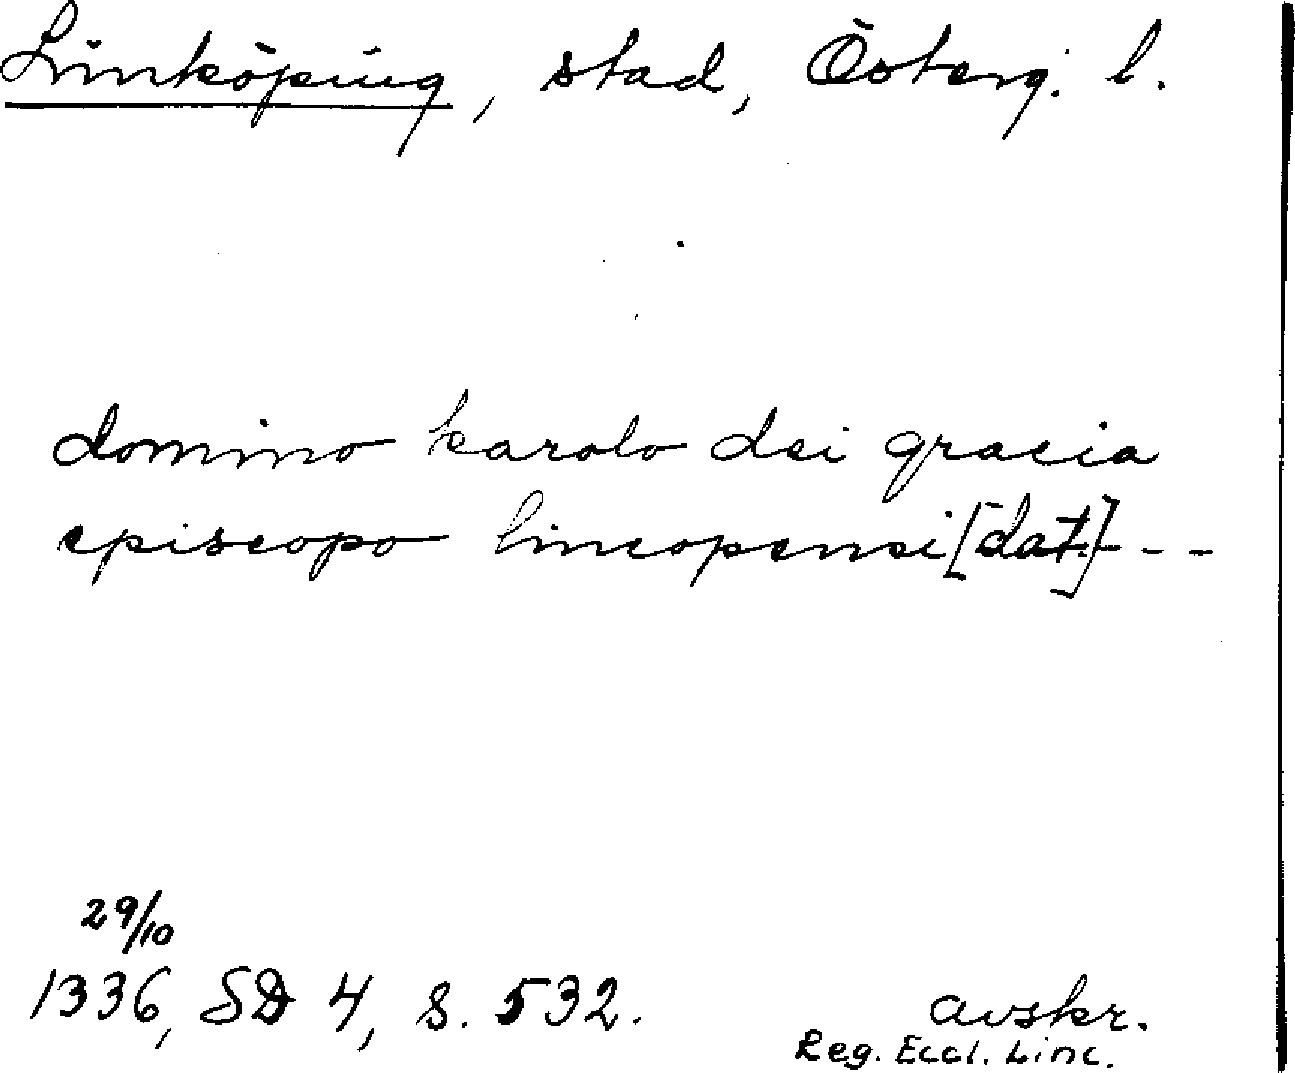 Linköping, stad, Österg. l.
domino karolo dei gracia
episcopo lincopensi [dat.] - - -
29/10
1336, SD 4, s. 532.
avskr.
Reg. Eccl. Linc.